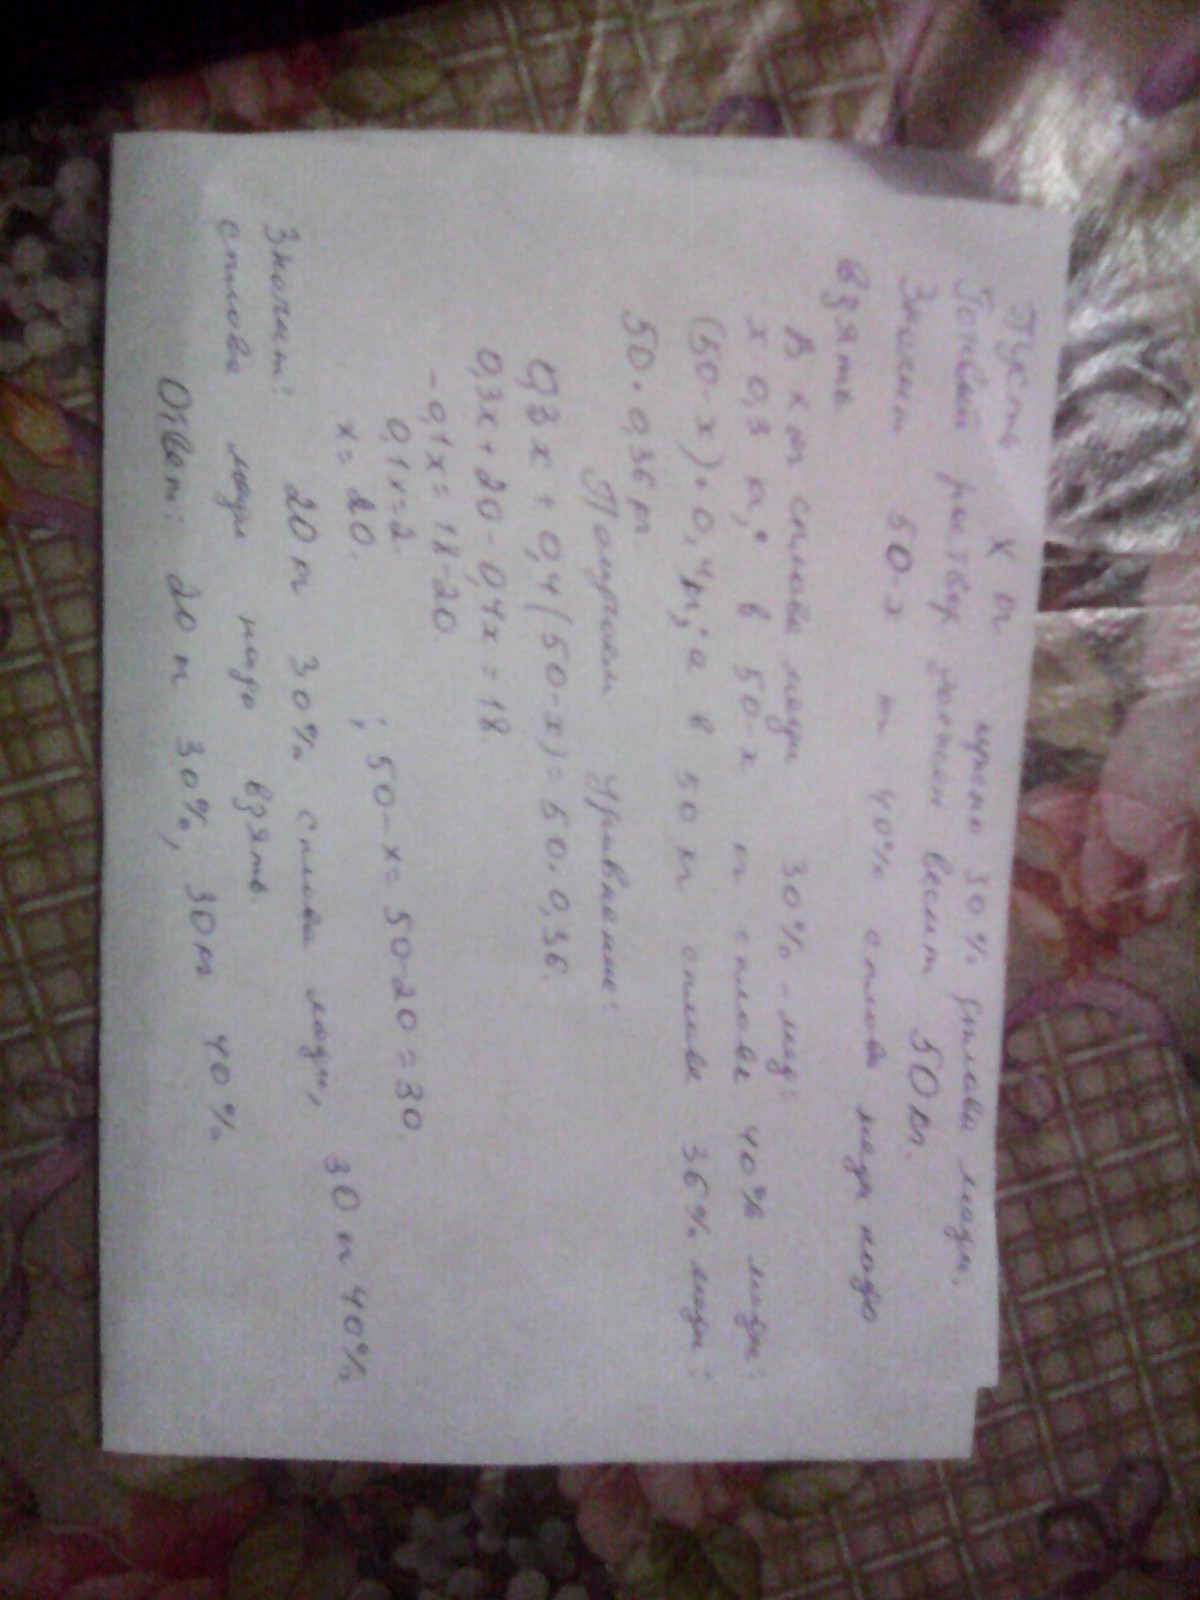 Пусть x т нужно 30% сплава меди.
Готовый раствор должен весит 50 т.
Значит 50-x т 40% сплава меди надо
взять.
В x т сплава меди 30% - мед:
x·0,3 т; в 50-x т сплаве 40% меди:
(50-x)·0,4 т; а в 50 т сплаве 36% меди:
50·0,36 т
Получаем уравнение:
0,3x+0,4(50-x)=50·0,36.
0,3x+20-0,4x=18.
-0,1x=18-20.
0,1x=2
x=20. ; 50-x=50-20=30.
Значит: 20 т 30% сплава меди, 30 т 40%
сплава меди надо взять.
Ответ: 20 т 30%, 30 т 40%